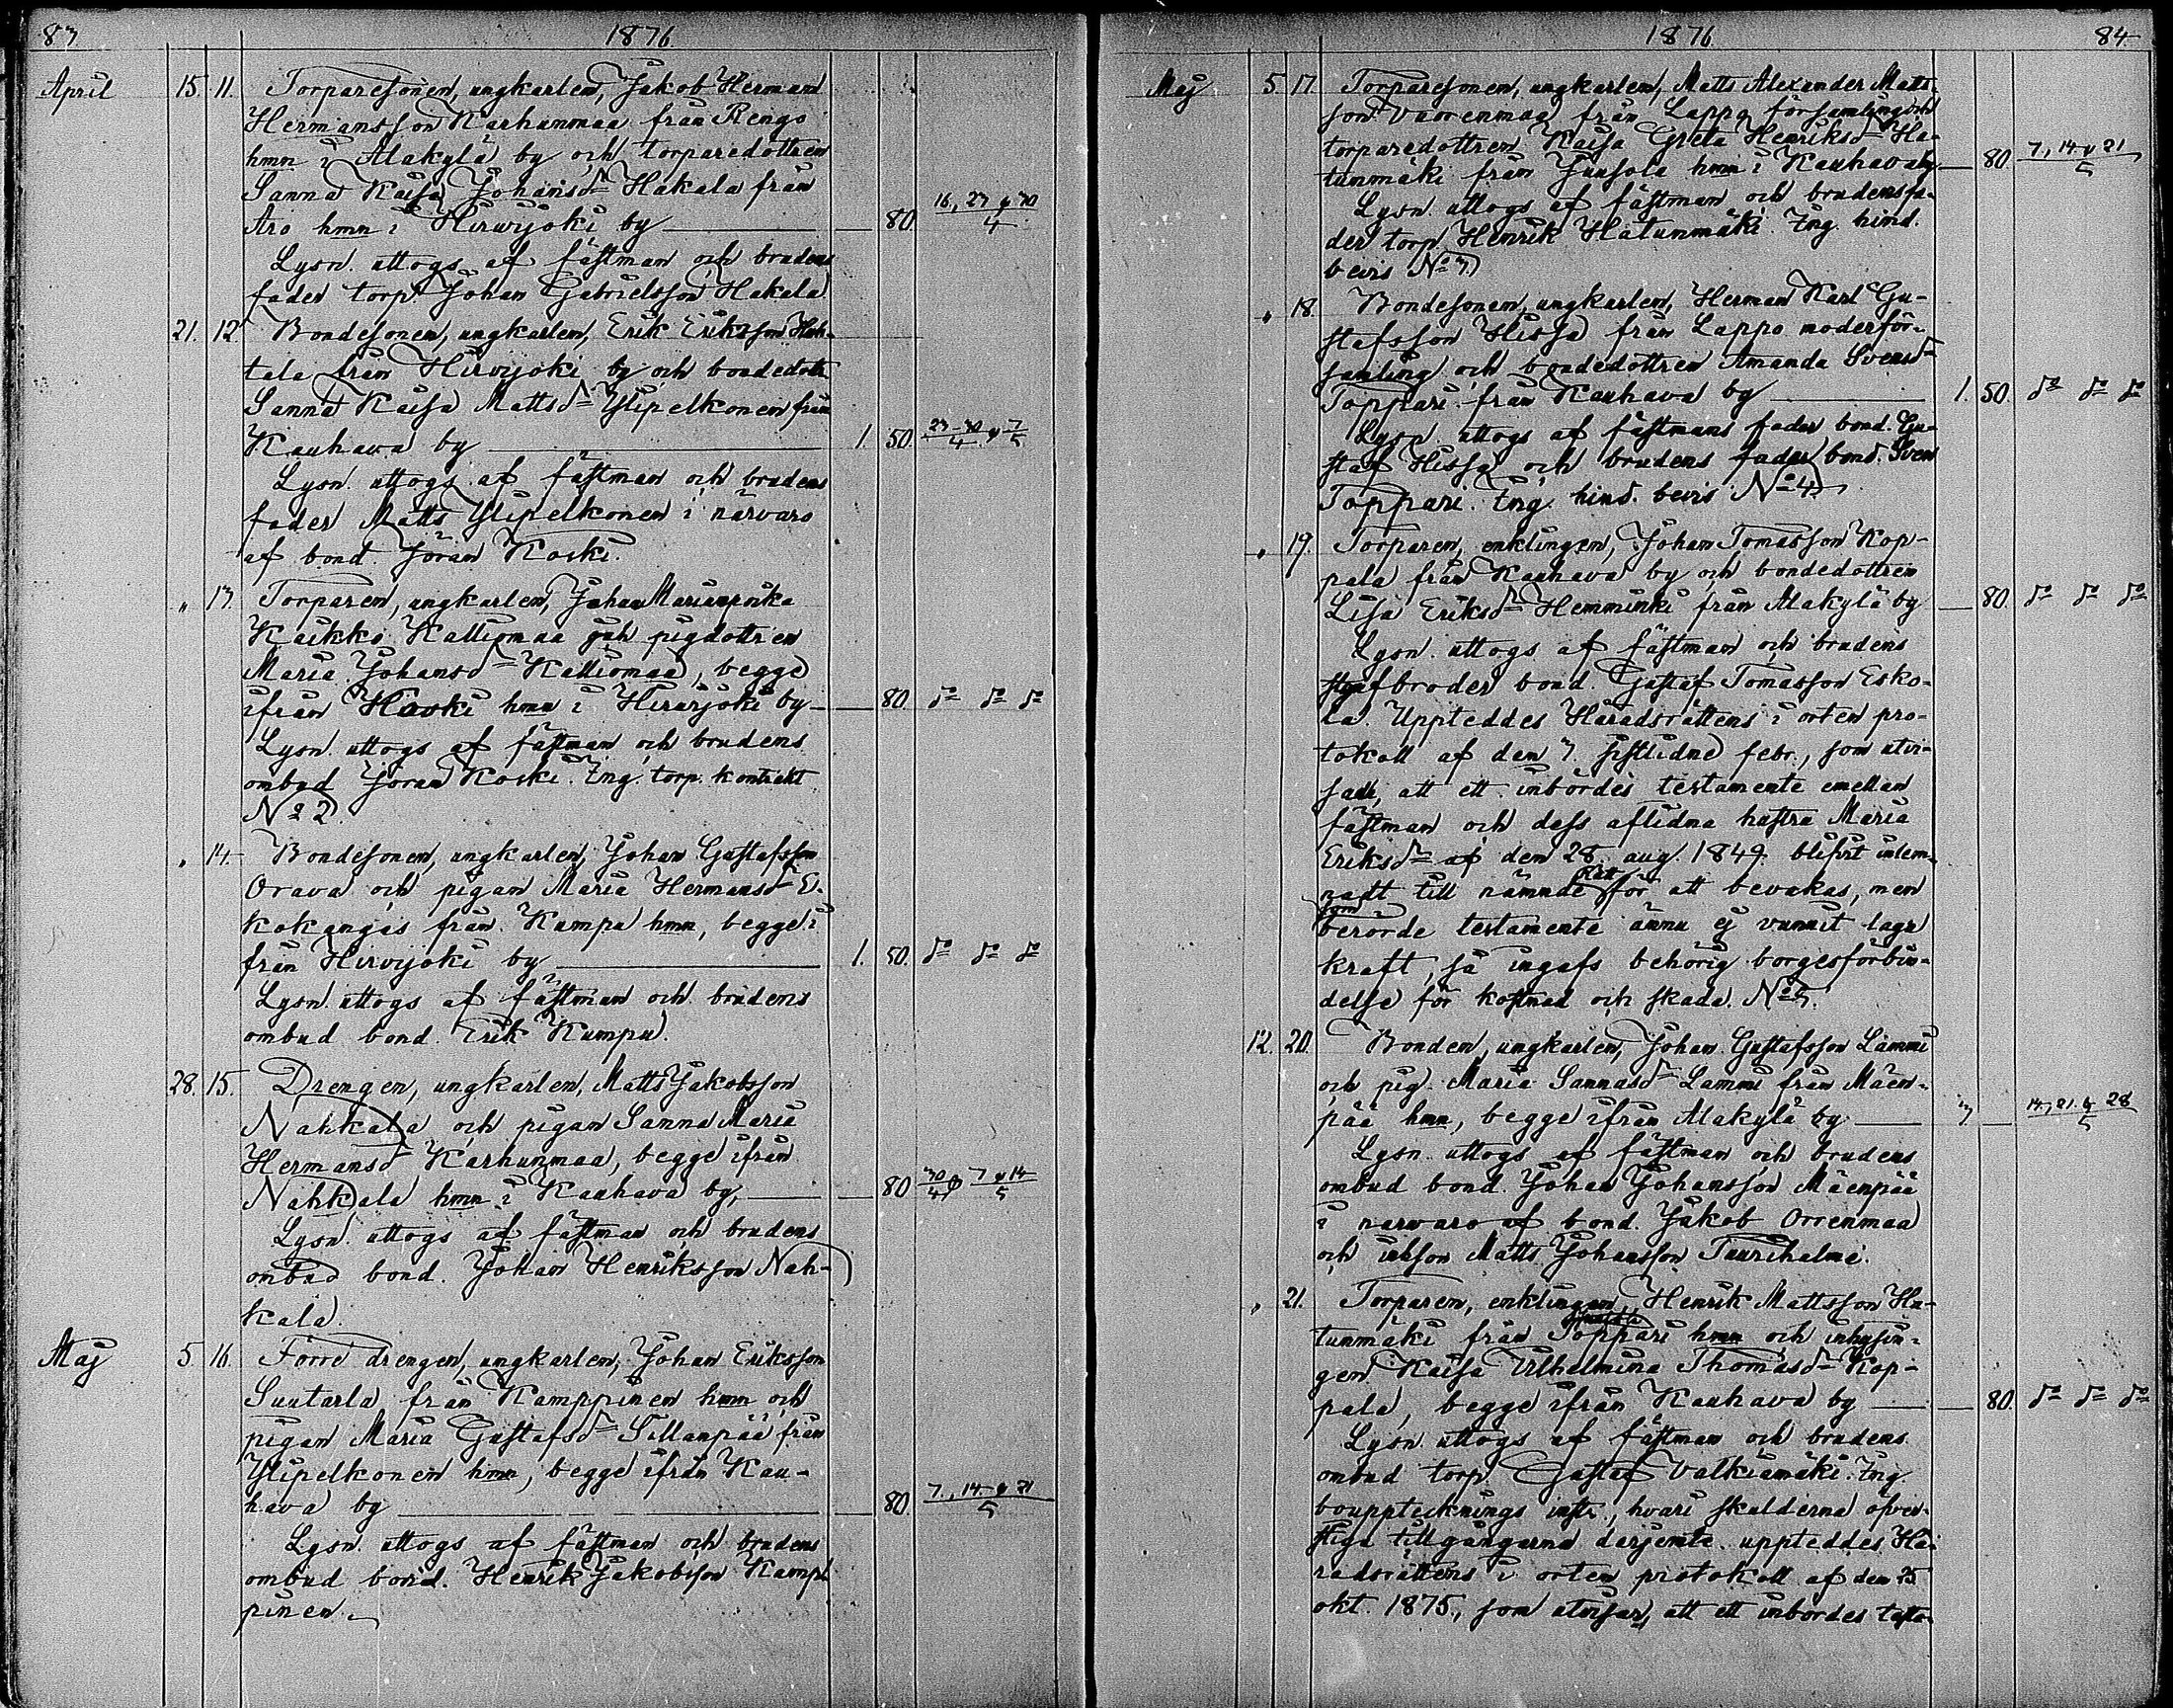 83 1876
April 15. 11. Torparesonen, ungkarlen, Jakob Herman
Hermansson Karhunmaa från Rengo
hmn i Alakylä by och torparedottren
Sanna Kaisa Johansd:r Hakala från
Aro hmn i Hirvijoki by — 80. 16, 23 & 30/4
Lysn. uttogs af fästman och brudens
fader torp. Johan Gabrielsson Hakala
21. 12. Bondesonen, ungkarlen, Erik Eriksson Huh-
tala från Hirvijoki by och bondedottr.
Sanna Kaisa Mattsd:r Ylipelkonen från
Kauhava by 1. 50. 23-30/4 & 7/5
Lysn. uttogs af fästman och brudens
fader Matts Ylipelkonen i närvaro
af bond. Jöran Koski.
" 13. Torparen, ungkarlen, Johan
Kaikko Kalliomaa och pigdottren
Maria Johansd:r Kalliomaa, begge
ifrån Koski hmn i Hirvijoki by — 80. d:o d:o d:o
Lysn. uttogs af fästman och brudens
ombud Jöran Koski. Ing. torp. kontrakt
N:o 2.
" 14. Bondesonen, ungkarlen, Johan Gustafsson
Orava och pigan Maria Hermansd:r E-
kokangas från Kumpu hmn, begge i
från Hirvijoki by 1. 50. d:o d:o d:o
Lysn. uttogs af fästman och brudens
ombud bond. Erik Kumpu.
28. 15. Drengen, ungkarlen, Matts Jakobsson
Nahkala och pigan Sanna Maria
Hermansd:r Karhunmaa, begge ifrån
Nahkala hmn i Kauhava by, — 80 30/4 & 7 & 14/5
Lysn. uttogs af fästman och brudens
ombud bond. Johan Henriksson Nah-
kala.
Maj 5. 16. Förre drengen, ungkarlen, Johan Eriksson
Suutarla från Kamppinen hmn och
pigan Maria Gustafsd:r Sillanpää från
Ylipelkonen hmn, begge ifrån Kau-
hava by — 80. 7, 14 & 21/5
Lysn. uttogs af fästman och brudens
ombud bond. Henrik Jakobsson Kamp-
pinen.
1876 84
Maj 5. 17. Torparesonen, ungkarlen, Matts Alexander Matts-
son Vuorenmaa från Lappo församling och
torparedottren Kaisa Greta Henriksd:r Ha-
tunmäki från Juusola hmn i Kauhava by — 80. 7, 14 & 21/5
Lysn. uttogs af fästman och brudens fa-
der torp. Henrik Hatunmäki. Ing. hind.
bevis N:o 3.
" 18. Bondesonen, ungkarlen, Herman Karl Gu-
stafsson Hissa från Lappo moderför-
samling och bondedottren Amanda Svensd:r
Toppari från Kauhava by 1. 50. d:o d:o d:o
Lysn. uttogs af fästmans fader bond. Gu-
staf Hissa och brudens fader bond. Sven
Toppari. Ing. hind. bevis N:o 4.
" 19. Torparen, enklingen, Johan Tomasson Kop-
pala från Kauhava by och bondedottren
Lisa Eriksd:r Hemminki från Alakylä by — 80. d:o d:o d:o
Lysn. uttogs af fästman och brudens
styfbroder bond. Gustaf Tomasson Esko-
la. Uppteddes Häradsrättens i orten pro-
tokoll af den 7. sistlidne febr., som utvi-
sade, att ett inbördes testamente emellan
fästman och dess aflidna hustru Maria
Eriksd:r af den 28. aug. 1849. blifvit inlem-
nadt till nämnde Rätt för att bevakas, men
som berörde testamente ännu ej vunnit laga
kraft, så ingafs behörig borgesförbin-
delse för kostnad och skada. N:o 5.
12. 20. Bonden, ungkarlen, Johan Gustafsson Lammi
och pig. Maria Sannasd:r Lammi från Mäen-
pää hmn, begge ifrån Alakylä by — 3 — 14, 21 & 28/5
Lysn. uttogs af fästman och brudens
ombud bond. Johan Johansson Mäenpää
i närvaro af bond. Jakob Orrenmaa
och inhson Matts Johansson Tuurihalme.
" 21. Torparen, enklingen, Henrik Mattsson Ha-
tunmäki från Toppari hmn och inhysin-
gen Kaisa Vilhelmina Thomasd:r Kop-
pala, begge ifrån Kauhava by — 80. d:o d:o d:o
Lysn. uttogs af fästman och brudens
ombud torp. Gustaf Valkiamäki. Ing.
bouppteckningsinstr., hvari skulderna öfver-
stiga tillgångarna derjemte uppteddes Hä-
radsrättens i orten protokoll af den 25
okt. 1875, som utvisar, att ett inbördes testa-